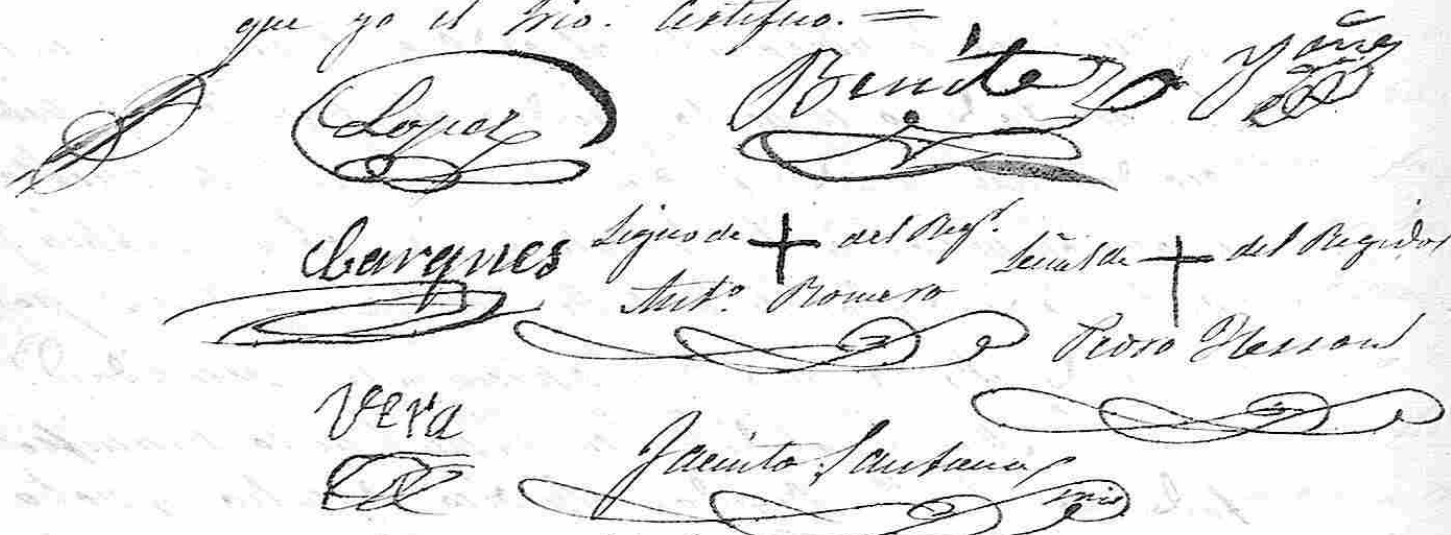 que yo el Srio. Certifico. =
Lopez Benitez Yañez
Barqnes Signo de + del Regr. Señal de + del Regidor
Anto. Romero
Pedro
Vera
Jacinto Santana
Srio